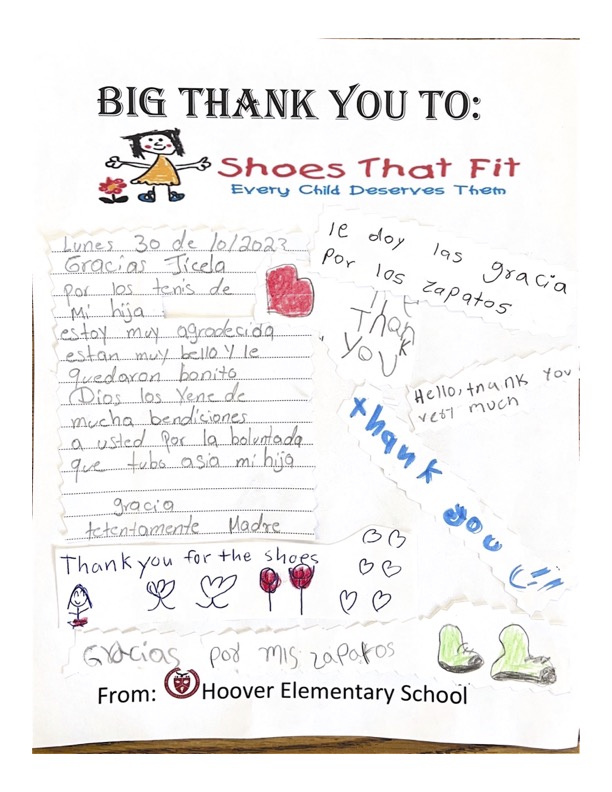 BIG THANK YOU TO:
Shoes That Fit
Every Child Deserves Them
Lunes 30 de 10/2023
Gracias Jicela
por los tenis de
Mi hija
estoy muy agradecida
estan muy bello y le
quedaron bonito
Dios los Vene de
mucha bendiciones
a usted por la boluntada
que tubo asia mi hija
gracia
tetentamente Madre
le doy las gracia
por los zapatos
Thank
you
Hello, thank you
very much
thank you
Thank you for the shoes
Gracias por mis zapatos
From: Hoover Elementary School